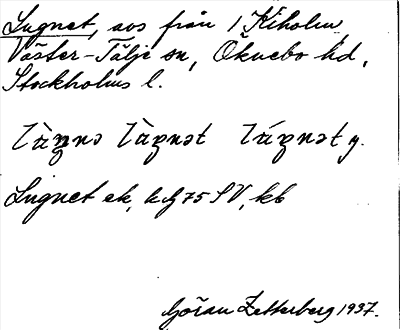 Lugnet, avs från 1 Kiholm,
Väster-Tälje sn, Öknebo hd,
Stockholms l.
Lugnet ek, bl 75 SV, kb
Göran Zetterberg 1937.